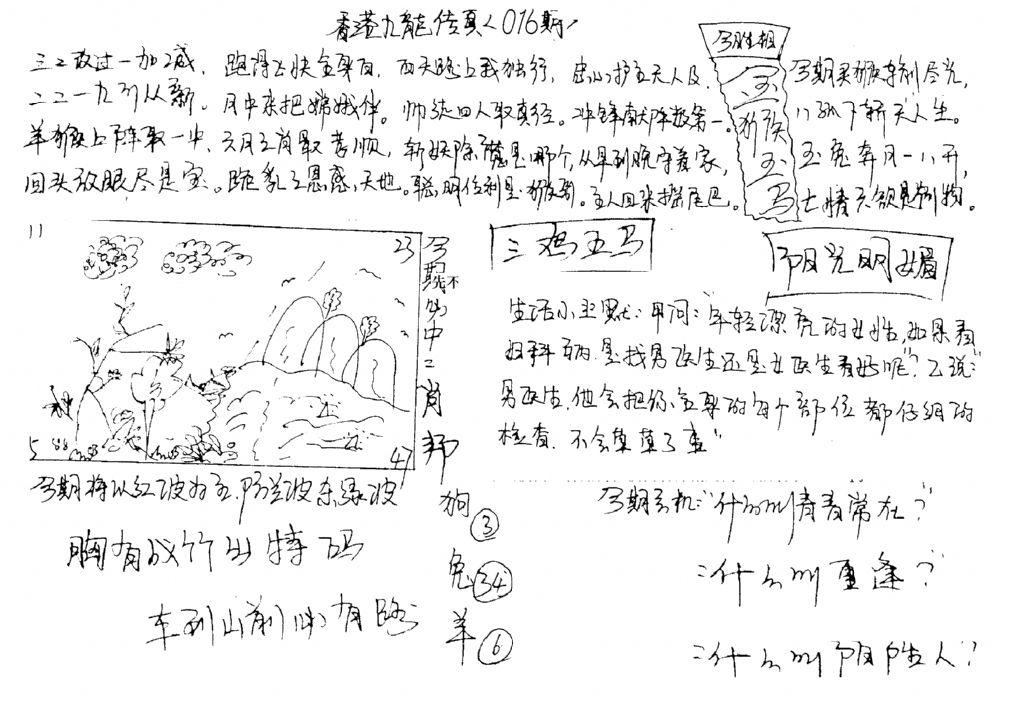 香港九龍传真<016期
三二改过一加减，跑得飞快全身白，西天路上我独行，忠心护主天人及
二二一九引从新。月中来把嫦娥伴。师徒四人取真经。冲锋献阵我第一。
羊猴上阵取一中，六月三肖最孝顺，斩妖除魔是哪个，从早到晚守着家，
回头放眼尽是宝。跪乳之恩感天地。聪明伶利是猴哥。主人回来摇尾巴。
今期生相
玉
猴
玉
马
今期买猴杀别尽光，
八孤下轿天人生。
玉兔奔月一八开，
七情六欲是别物。
11
23
5
47
今期不出中二肖邦
三鸡五马
阳光明媚
生活小幽默：甲问：年轻漂亮的女性，如果有
妇科病，是找男医生还是女医生看好呢？乙说：
男医生，他会把你全身的每个部位都仔细的
检查，不会草草了事"
今期将以红波为主，防兰波杀绿波
胸有成竹出特码
车到山前必有路
狗③
兔㉞
羊⑥
今期玄机："什么叫青春常在？
：什么叫重逢？
：什么叫阴阳人？